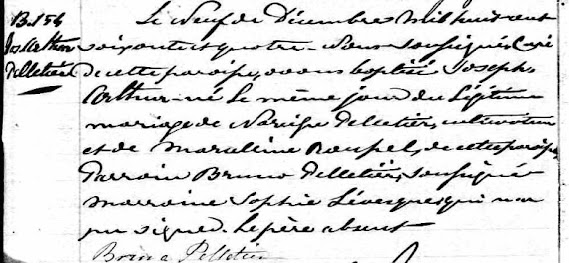 B.154
Jos. Arthur
Pelletier
Le Neuf de Décembre mil huit cent
soixante et quatre. Nous soussigné, Curé
de cette paroisse, avons baptisé Joseph
Arthur né le même jour du légitime
mariage de Narcisse Pelletier, cultivateur
et de Marceline Roussel, de cette paroisse,
Parrain Bruno Pelletier, soussigné
marraine Sophie Lévesque qui n'a
pu signer. Le père absent
Bruno Pelletier